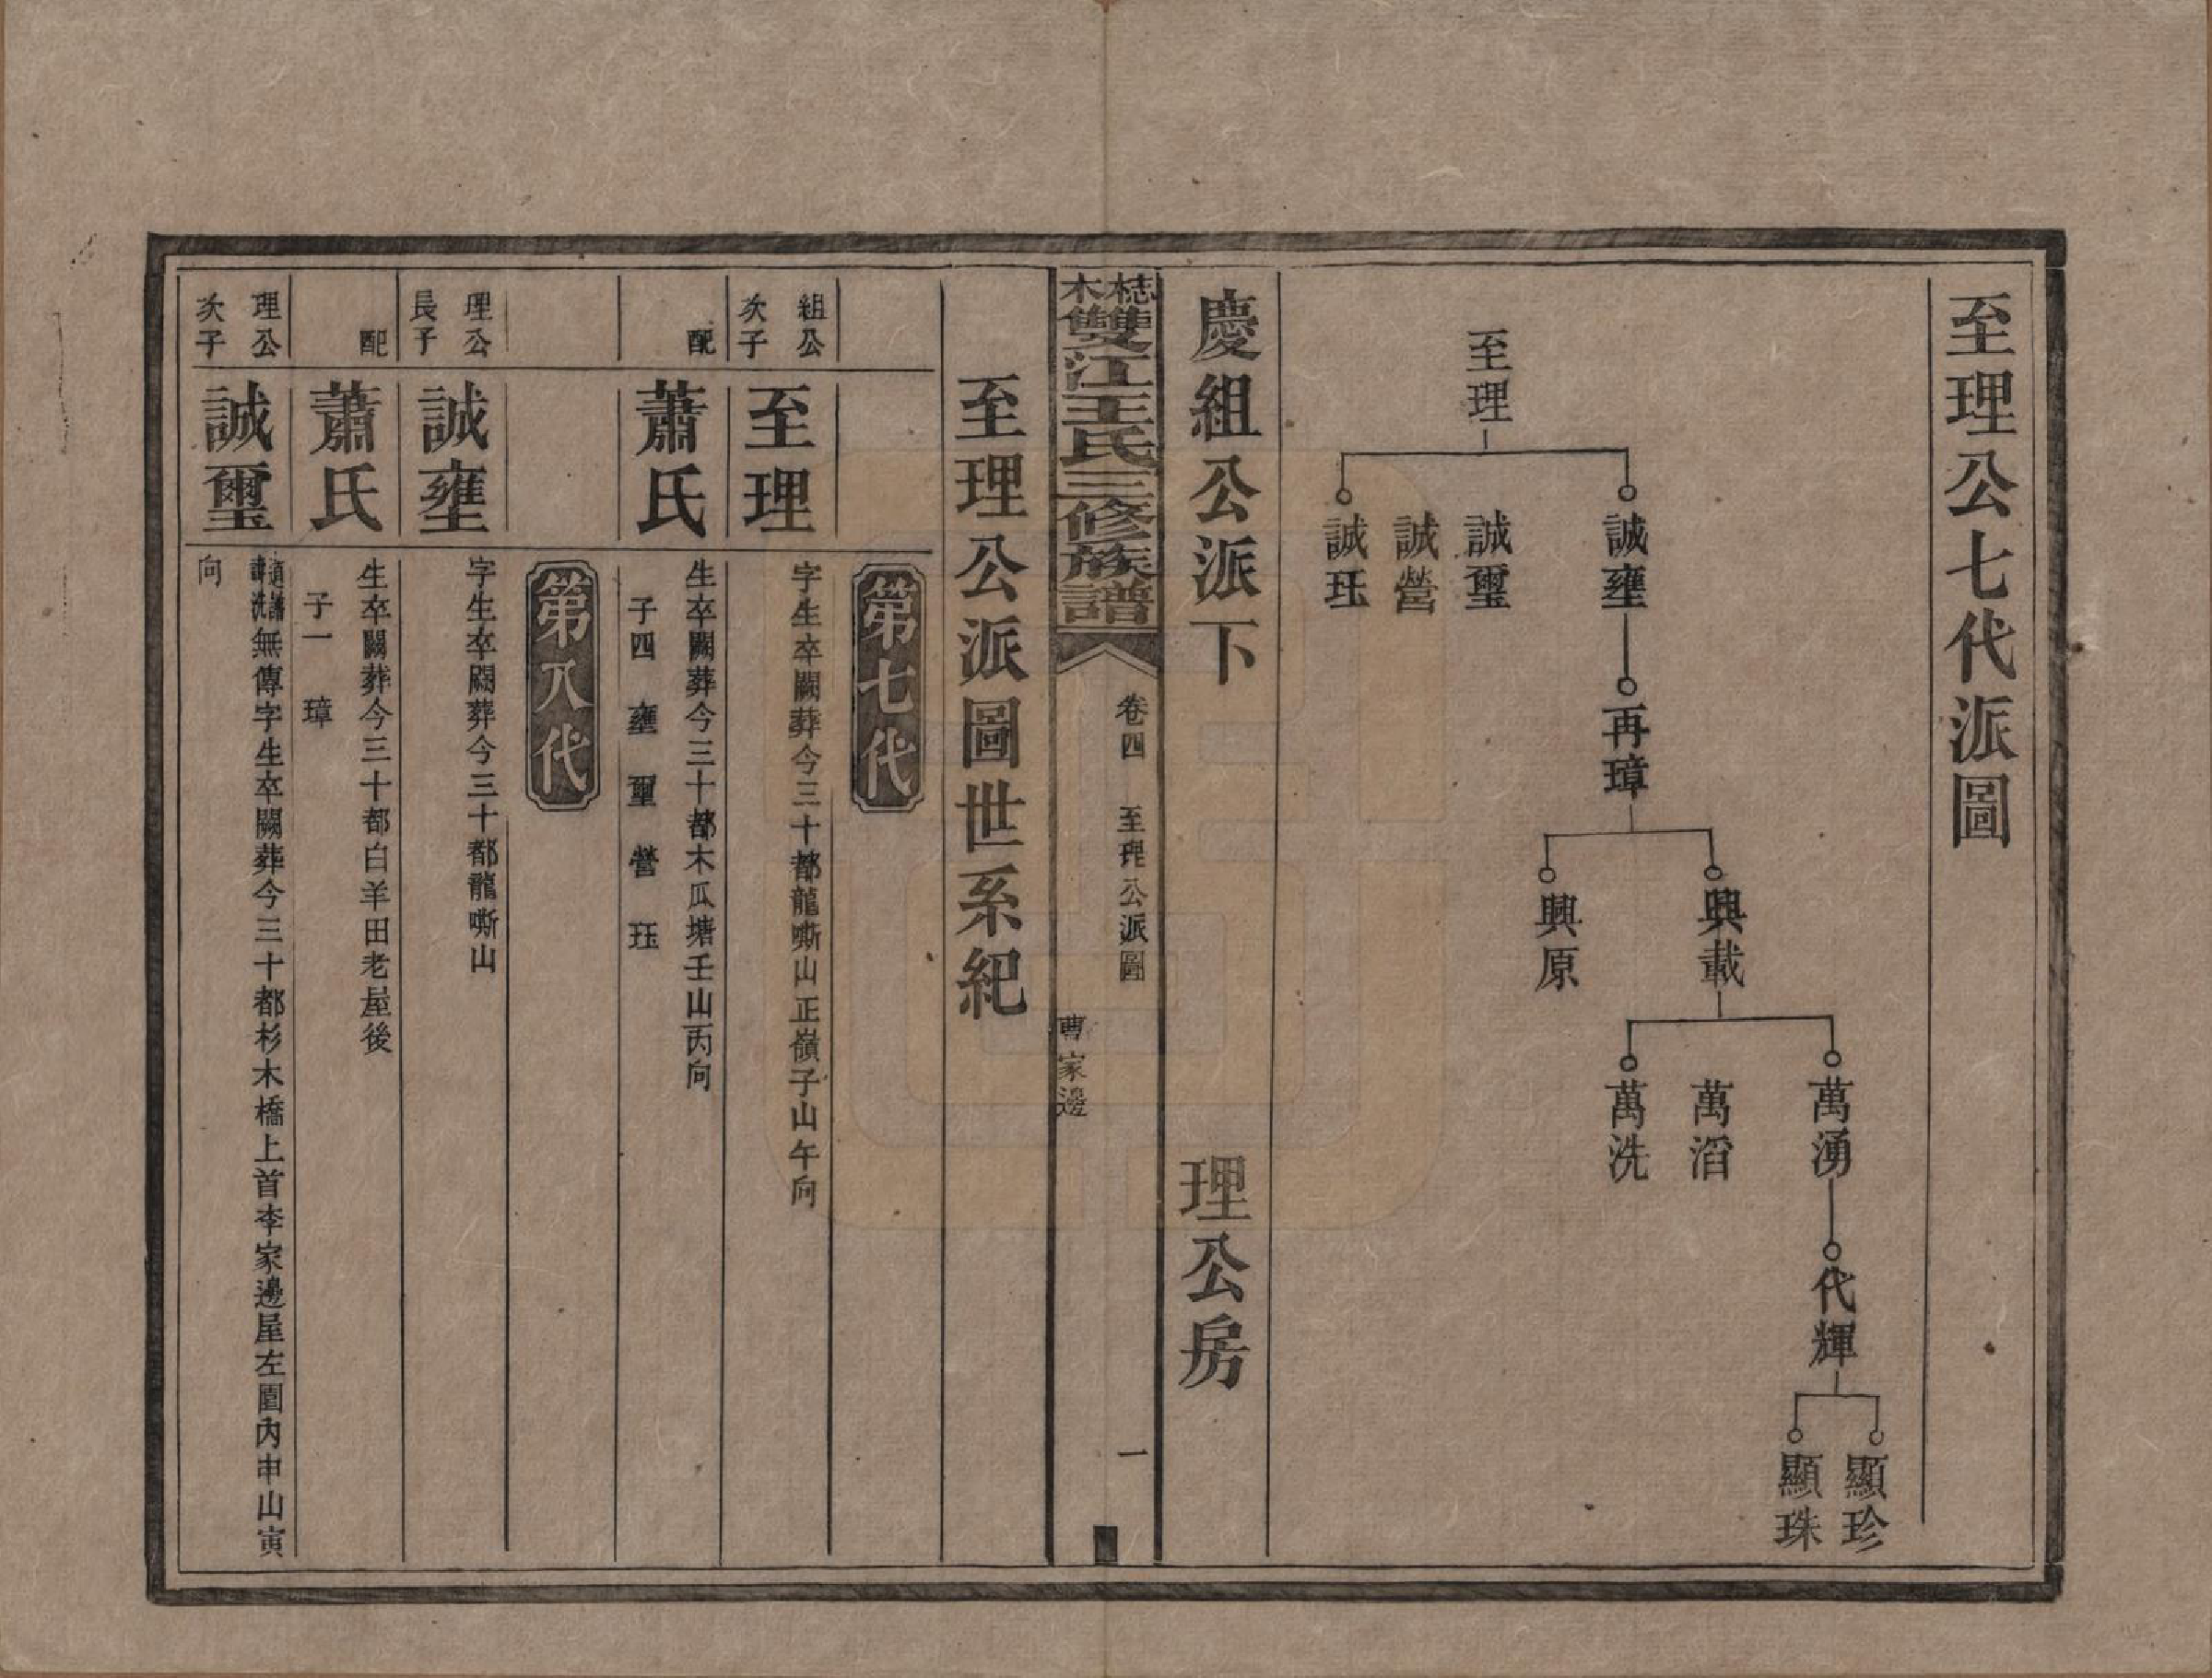 至理公七代派圖
至理
誠壅
誠璽
誠營
誠玨
再璋
興載
興原
萬湧
萬滔
萬洗
代輝
顯珍
顯珠
慶組公派下 理公房
木梽雙江王氏三修族譜
卷四 至理公派圖 一
曹家邊
至理公派圖世系紀
第七代
組公次子
至理
字生卒闕葬今三十都龍嘶山正嶺子山午向
配
蕭氏
生卒闕葬今三十都木瓜塘壬山丙向
子四 壅 璽 營 玨
第八代
理公長子
誠壅
字生卒闕葬今三十都龍嘶山
配
蕭氏
生卒闕葬今三十都白羊田老屋後
子一 璋
理公次子
誠璽
無傳字生卒闕葬今三十都杉木橋上首李家邊屋左園內申山寅
向